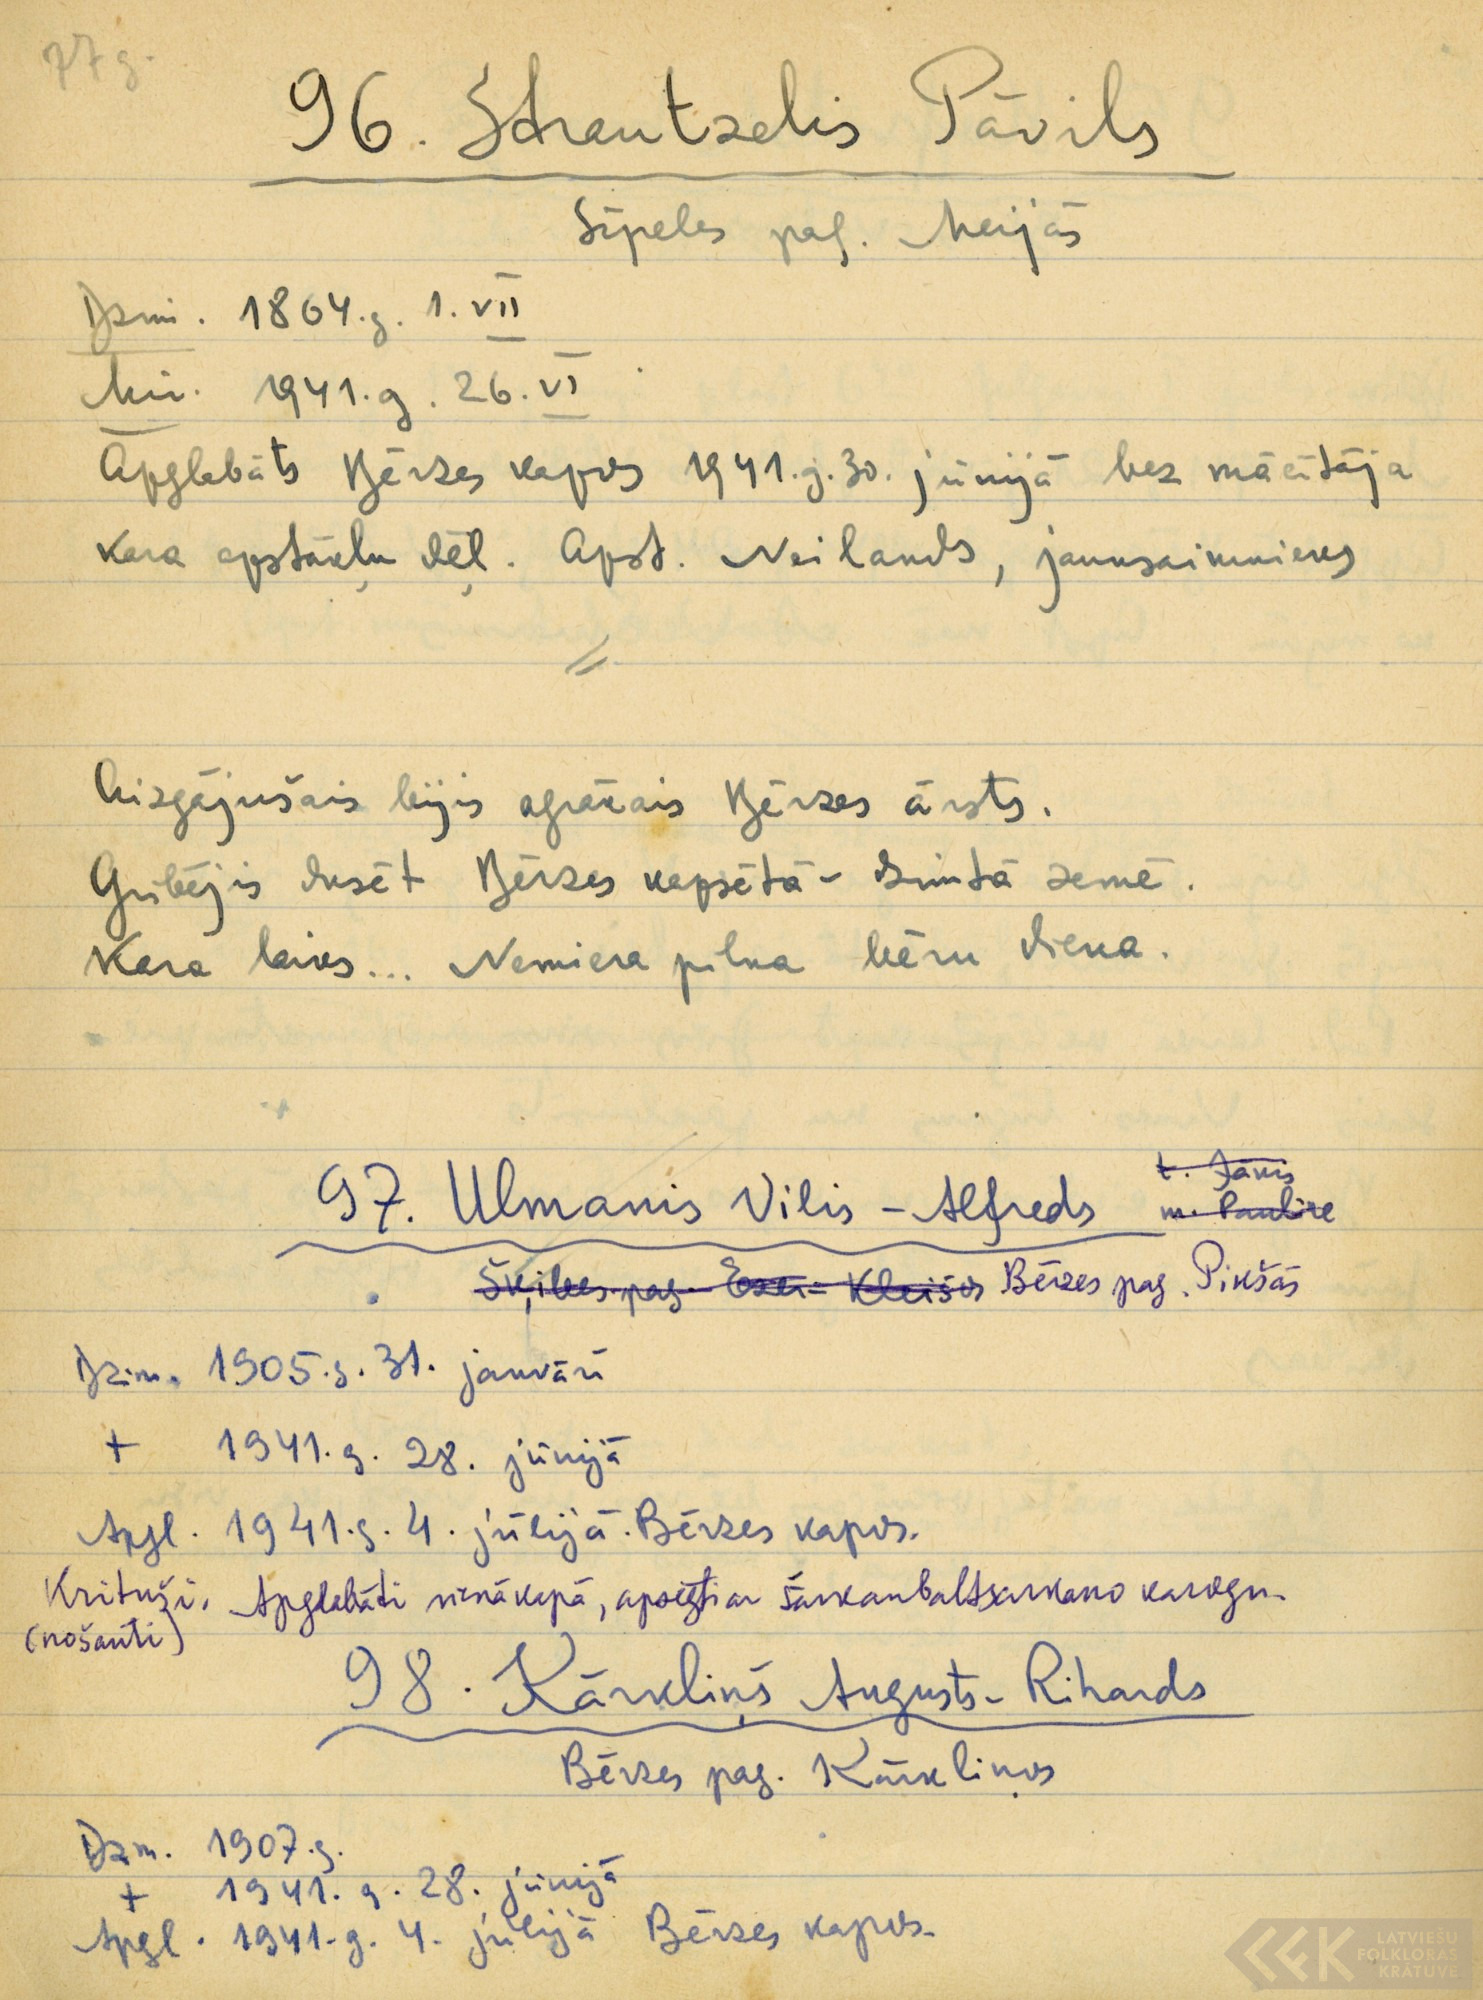 77 g.
96. Strautzelis Pāvils
Sīpeles pag. Meijās
Dzim. 1864.g. 1. VII
Mir. 1941.g. 26. VI
Apglabāts Bērzes kapos 1941.g. 30. jūnijā bez mācītāja
kara apstākļu dēļ. Apst. Neilands, jaunsaimnieks
Aizgājušais bijis agrākais Bērzes ārsts.
Gribējis dusēt Bērzes kapsētā - dzimtā zemē.
Kara laiks... Nemiera pilna bēru diena.
97. Ulmanis Vilis - Alfreds
t. Jānis
m. Paulīne
Šķibes pag. Ezer- Kleišos Bērzes pag. Pikšās
Dzim. 1905.g. 31. janvārī
+ 1941.g. 28. jūnijā
Apgl. 1941.g. 4. jūlijā. Bērzes kapos.
Krituši. Apglabāti vienā kapā, apsegti ar sarkanbaltsarkano karogu.
(nošauti)
98. Kārkliņš Augusts - Rihards
Bērzes pag. Kārkliņos
Dzm. 1907.g.
+ 1941.g. 28. jūnijā
Apgl. 1941.g. 4. jūlijā Bērzes kapos.
LATVIEŠU
FOLKLORAS
KRĀTUVE